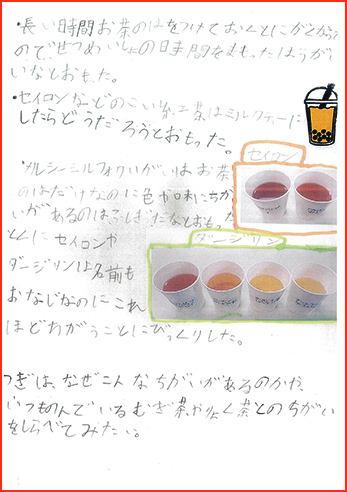 ・長い時間お茶のはをつけておくとにがくなる
ので、せつめいしょの時間をまもったほうがい
いなとおもった。
・セイロンなどのこい紅茶はミルクティーに
したらどうだろうとおもった。
セイロン
・メルシーミルフォワいがいはお茶
のはだけなのに色や味にちが
いがあるのはふしぎだなとおもった
とくにセイロンや
ダージリンは名前も
おなじなのにこれ
ほどちがうことにびっくりした。
ダージリン
つぎは、なぜこんなちがいがあるのかや、
いつものんでいるむぎ茶やりょく茶とのちがい
をしらべてみたい。